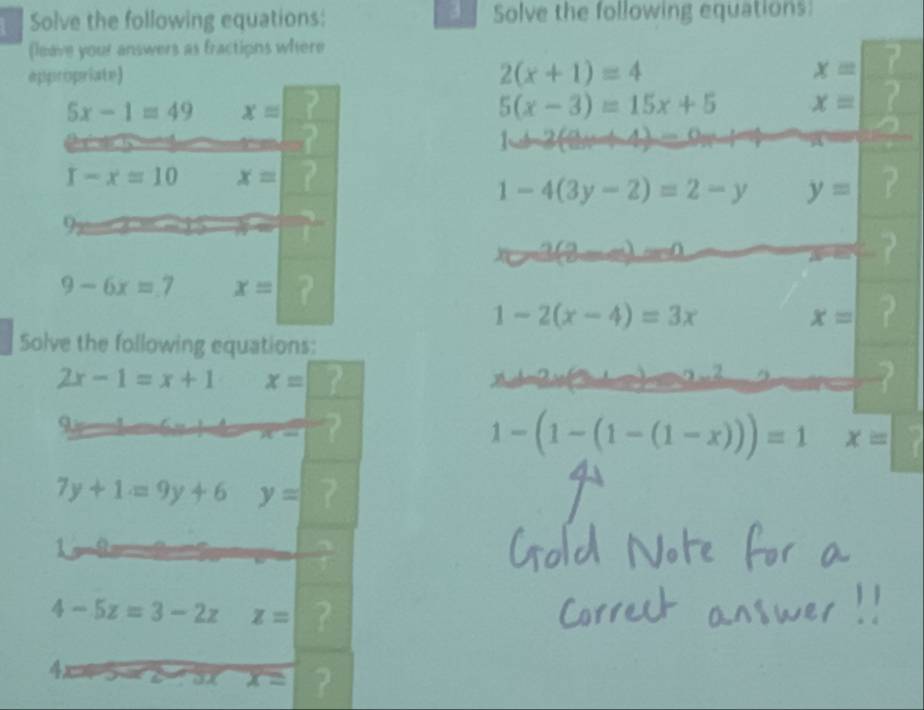 Solve the following equations:
(leave your answers as fractions where
appropriate)
5x − 1 = 49 x = ?
?
1 − x = 10 x = ?
?
9 − 6x = 7 x = ?
Solve the following equations:
2x − 1 = x + 1 x = ?
?
7y + 1 = 9y + 6 y = ?
?
4 − 5z = 3 − 2z z = ?
?
3 Solve the following equations:
2(x + 1) = 4 x = ?
5(x − 3) = 15x + 5 x = ?
?
1 − 4(3y − 2) = 2 − y y = ?
?
1 − 2(x − 4) = 3x x = ?
?
1 − (1 − (1 − (1 − x))) = 1 x = ?
Gold Note for a
correct answer!!